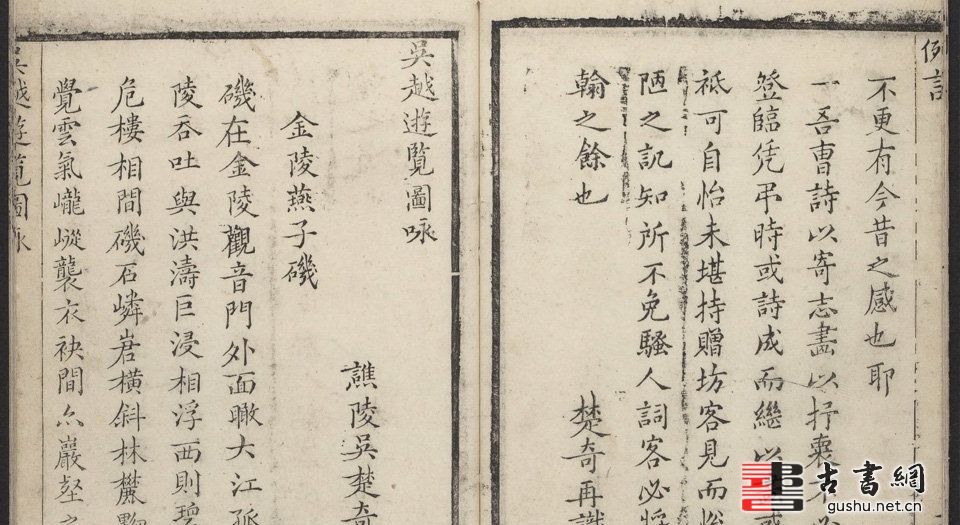 例言
不更有今昔之感也耶
一吾曹詩以寄志畵以抒
登臨凭弔時或詩成而繼以
祗可自怡未堪持贈坊客見而
陋之訊知所不免騷人詞客必
翰之餘也
楚奇再識
吳越遊覽圖咏
譙陵吳楚奇
金陵燕子磯
磯在金陵觀音門外面瞰大江孤
陵吞吐與洪濤巨浸相浮西則碧
危樓相間磯石嶙峋橫斜林麓
覺雲氣巃嵸襲衣袂間亦巖壑
吳越遊覽圖咏
古書網
gushu.net.cn